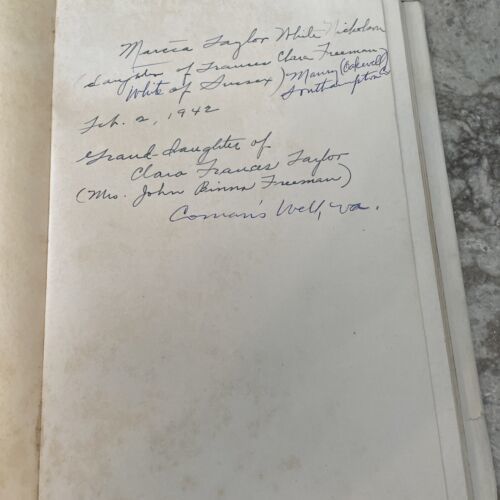 Marcia Taylor White Nicholson
daughter of Frances Clara Freeman
White of Sussex) Manry (Oakwell)
Southampton Co
Feb. 2, 1942
Grand-daughter of
Clara Frances Taylor
(Mrs. John Binns Freeman)
Coman's Well, Va.